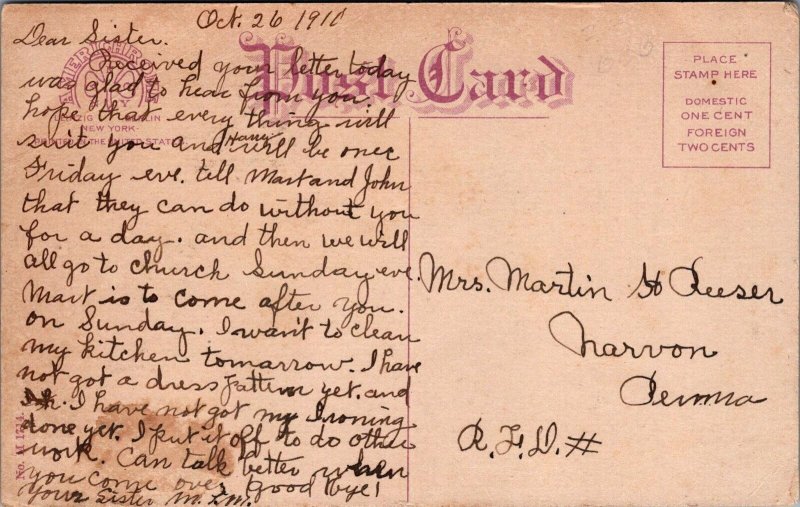 Oct. 26 1911
Dear Sister.
Received your letter today
was glad to hear from you.
hope that every thing will
suit you and
Harry
will be over
Friday eve. tell Mart and John
that they can do without you
for a day. and then we will
all go to church Sunday eve.
Mart is to come after you.
on Sunday. I want to clean
my kitchen tomarrow. I have
not got a dress pattern yet. and
I have not got my Ironing
done yet. I put it off to do other
work. Can talk better when
you come over good bye!
Your Sister M. Z. M.
Post Card
AMERICHROME
NEW YORK
THE UNITED STATES
No. M 1511
PLACE
STAMP HERE
DOMESTIC
ONE CENT
FOREIGN
TWO CENTS
Mrs. Martin H Reeser
Narvon
Penna
R. F. D. #